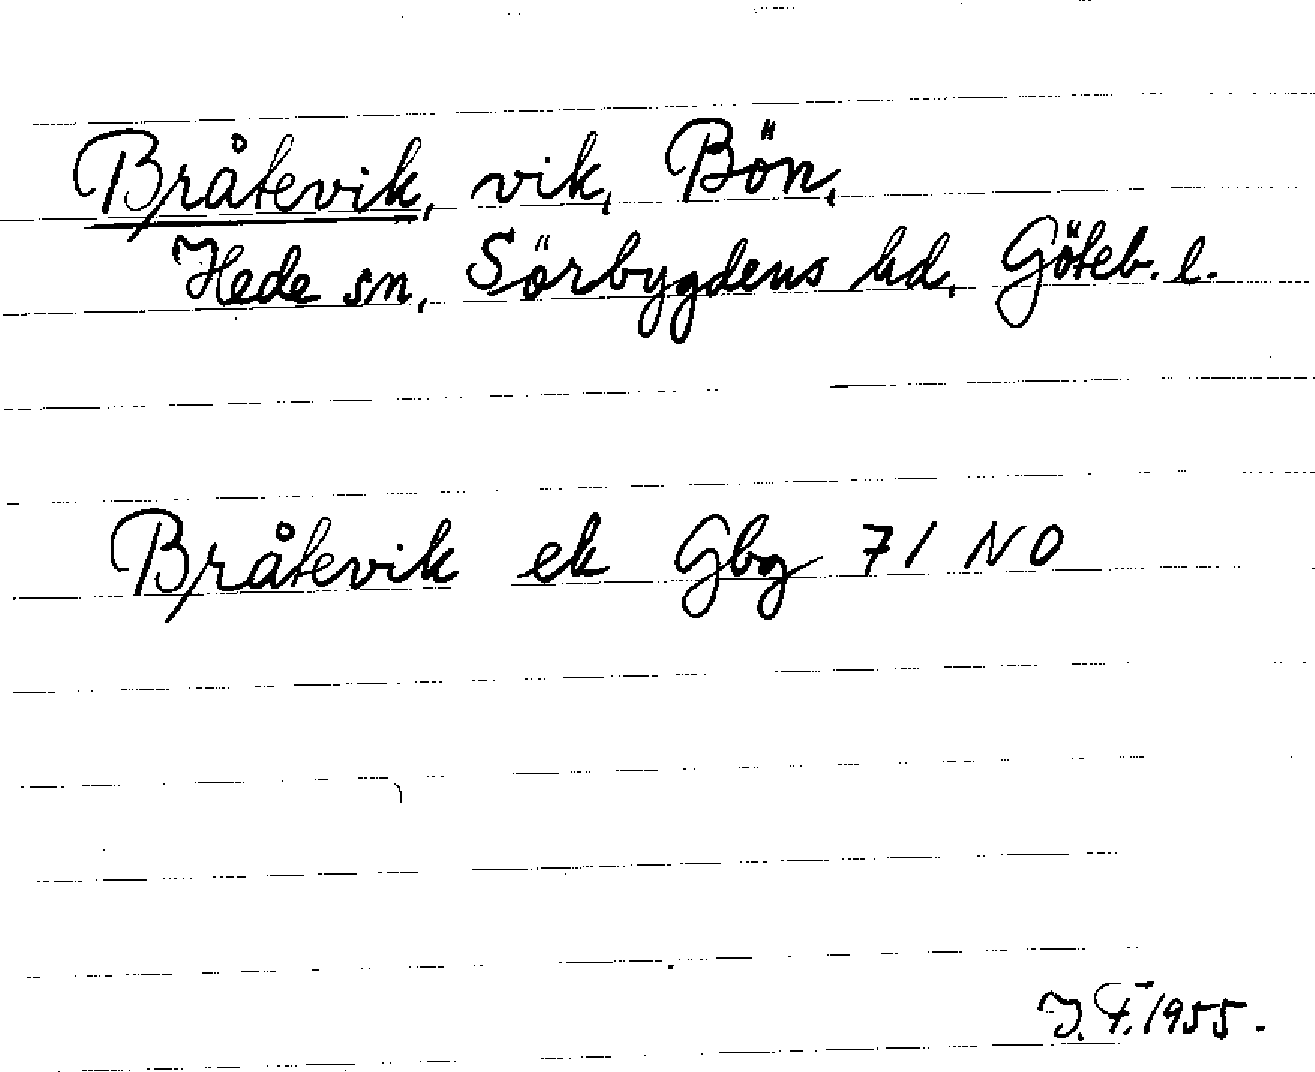 Bråtevik, vik, Bön,
Hede sn, Sörbygdens hd, Göteb. l.
Bråtevik ek Gbg 71 NO
J. F. 1955.